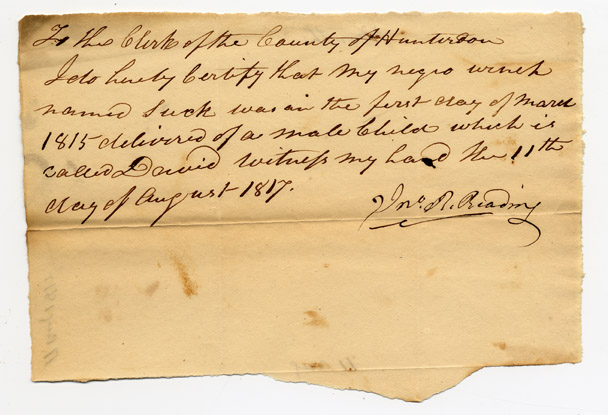 To the Clerk of the County of Hunterdon
I do hereby Certify that my negro wench
named Suck was on the first day of March
1815 delivered of a male Child which is
called David Witness my hand the 11th
day of August 1817.
Jno. R. Reading